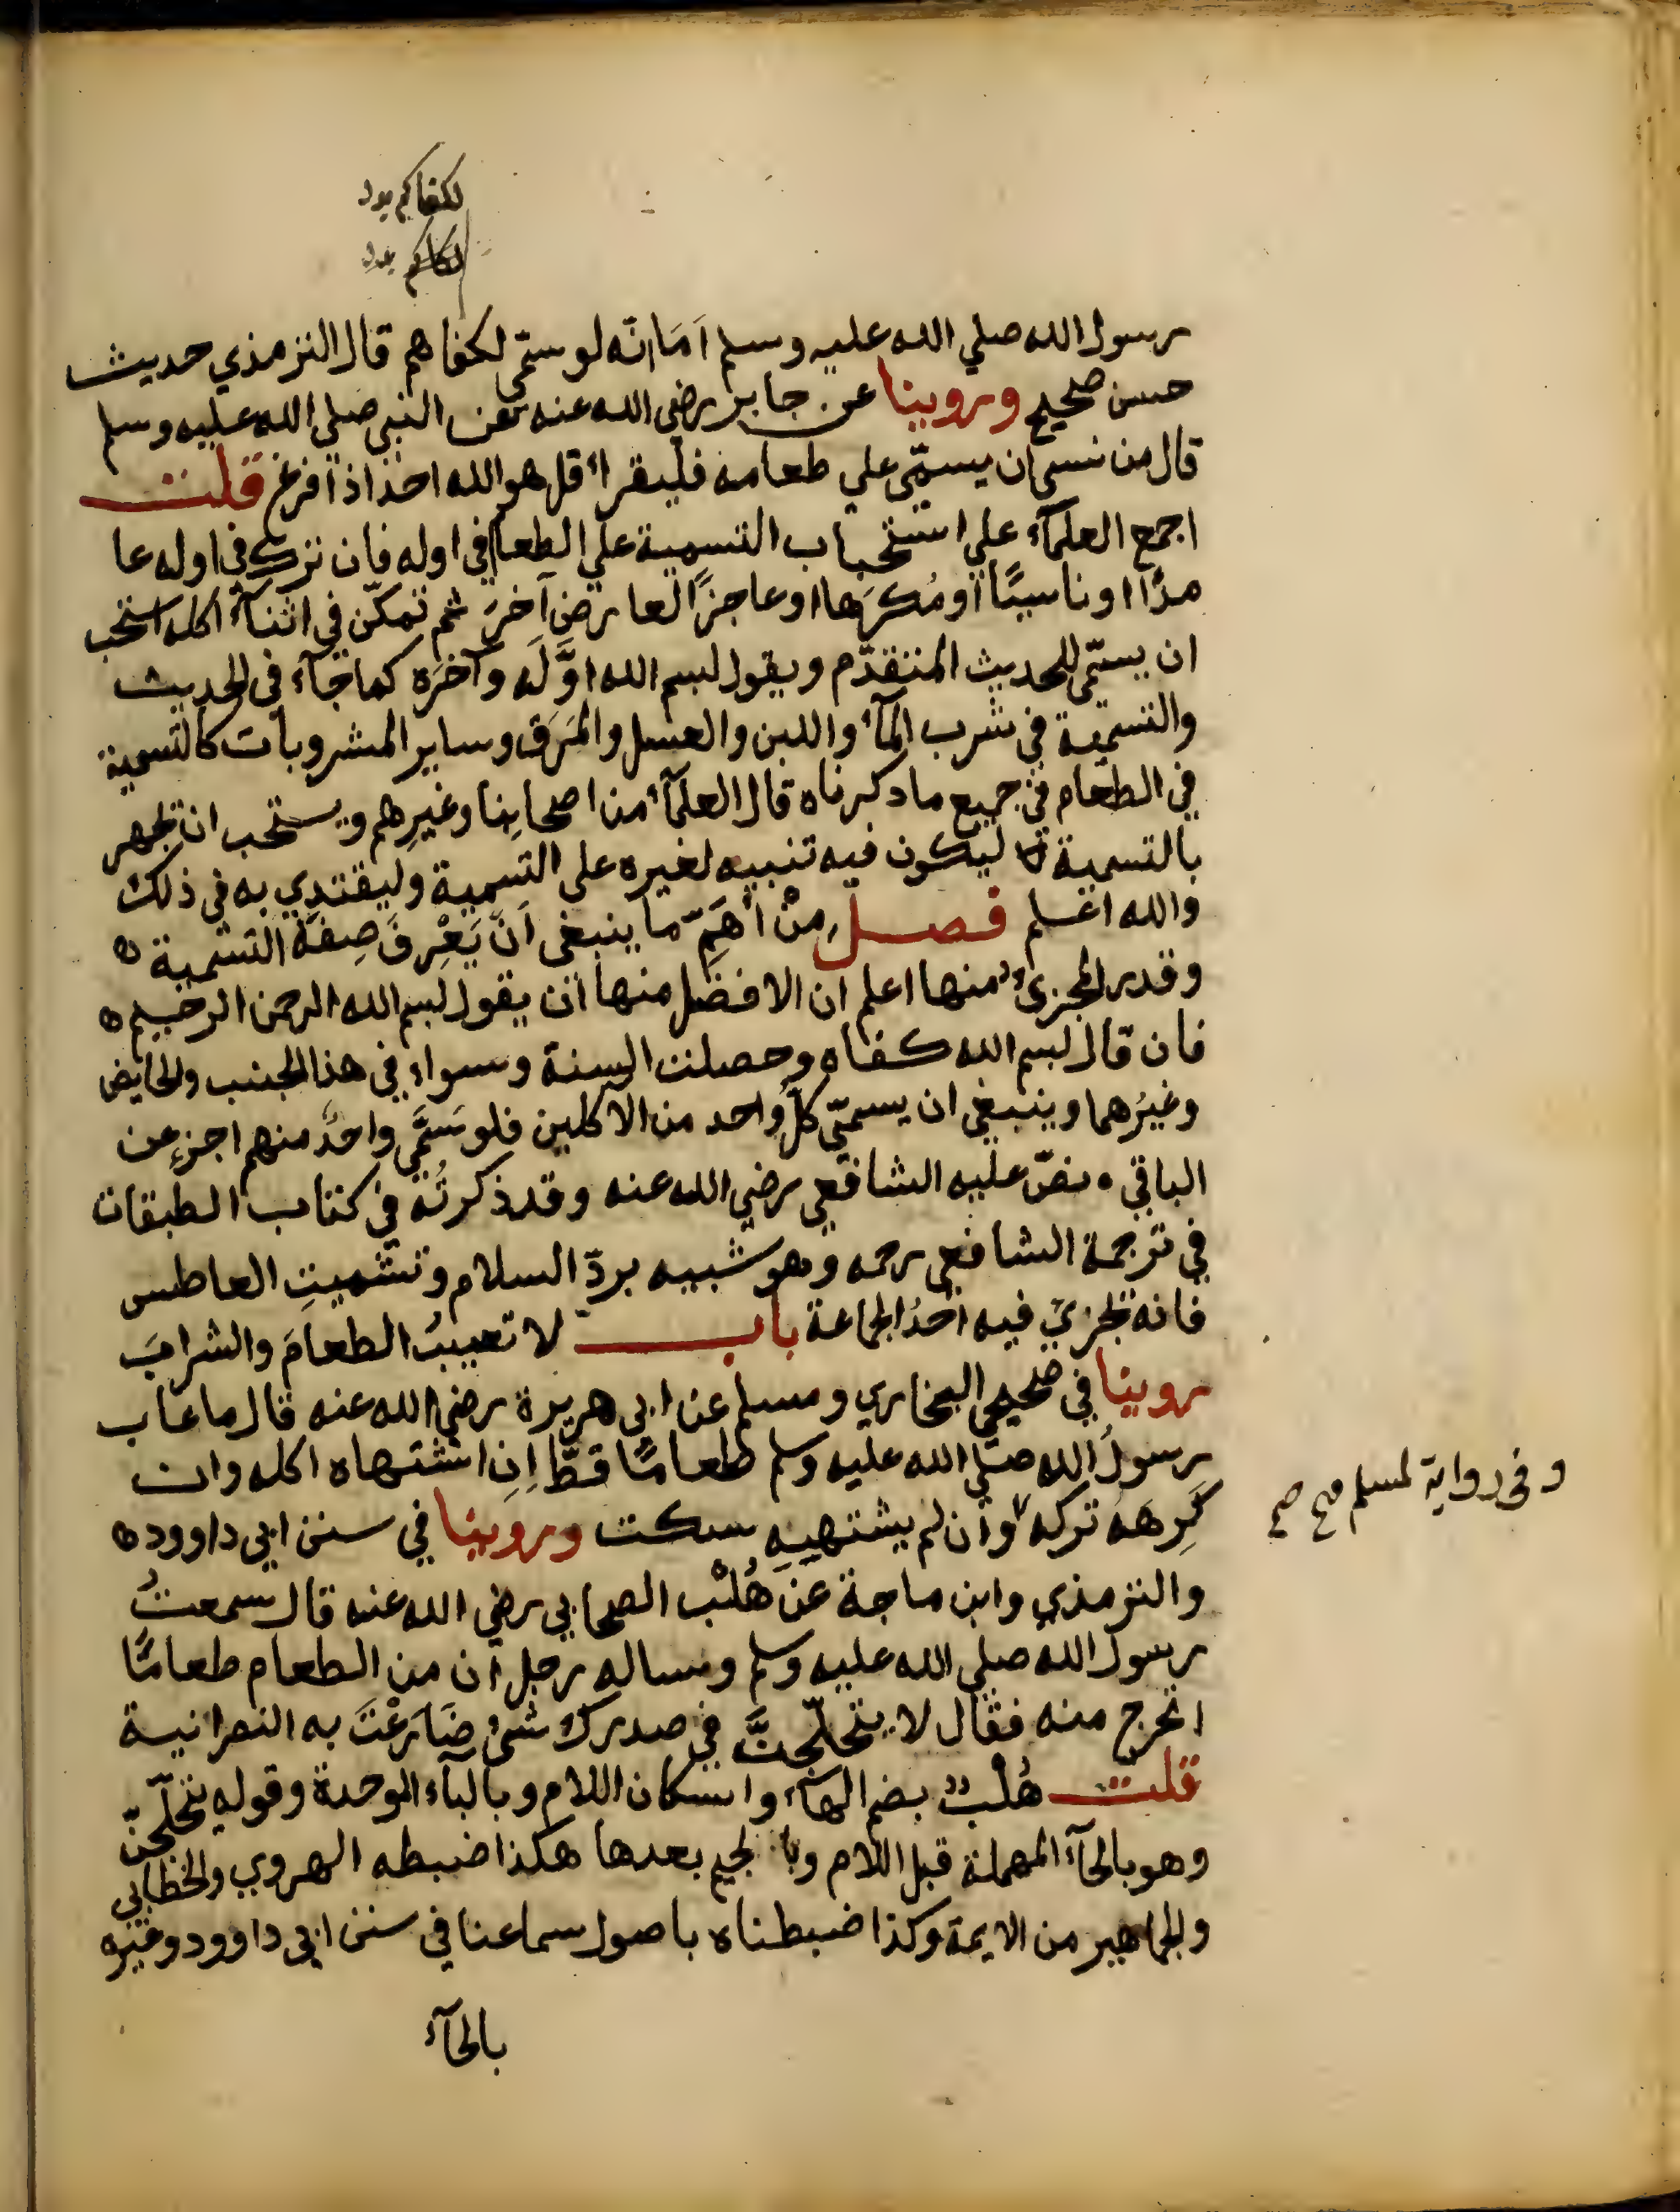 لكفاكم
رسول الله صلي الله عليه وسلم اَمَا انّه لو سمّى لكفاهم قال الترمذي حديث
حسن صحيح وروينا عن جابر رضي الله عنه عن النبي صلي الله عليه وسلم
قال من نسي ان يسمّي علي طعامه فليقرأ قل هو الله احد اذا فرغ قلت
اجمع العلمآء علي استحباب التسمية علي الطعام في اوله فان ترك في اوله عا
مدًا او ناسيًا او مُكرَها او عاجزًا لعارض آخرَ ثم تمكّن في اثنآء اكله استحب
ان يسمّي للحديث المتقدّم ويقول بسم الله اوَّلَه وآخرَه كما جآء في الحديث
والتسمية في شرب المآء واللبن والعسل والمَرَق وساير المشروبات كالتسمية
في الطعام في جميع ما ذكرناه قال العلمآء من اصحابِنا وغيرِهم ويستحب ان يجهر
بالتسمية ليكون فيه تنبيه لغيره علي التسمية وليقتدِي به في ذلك
والله اعلم فصل مِنْ اَهَمِّ ما ينبغي اَنْ يَعْرِفَ صِفَة التسمية ه
وقدر المجزئ منها اعلم ان الافضل منها ان يقول بسم الله الرحمن الرحيم ه
فان قال بسم الله كفاه وحصلت السنة وسواء في هذا الجنب والحايض
وغيرُهما وينبغي ان يسمّي كلُّ واحد من الآكلين فلو سَمَّي واحدٌ منهم اجزء عن
الباقي ه نصّ عليه الشافعي رضي الله عنه وقد ذكرتُه في كتاب الطبقات
في ترجمة الشافعي رحمه وهو شبيه بردّ السلام وتشميتِ العاطس
فانه يجزي فيه احدُ الجماعة باب لا تعيبُ الطعامَ والشرابَ
روينا في صحيحي البخاري ومسلم عن ابي هريرة رضي الله عنه قال ما عاب
رسولُ الله صلي الله عليه وسلم طعامًا قطّ اِنِ اشتهاه اكله وان
كَرِهَهُ تركه وان لم يشتهيه سكت وروينا في سنن ابي داوود ه
وفي رواية لمسلم صح صح
والترمذي وابن ماجة عن هُلْب الصحابي رضي الله عنه قال سمعتُ
رسول الله صلي الله عليه وسلم وساله رجل ان من الطعام طعامًا
اتحرج منه فقال لا يتحلّجنَّ في صدرك شئ ضَارَعْتَ به النصرانية
قلت هُلْبٌ بضم الهآء واسكان اللام وبالبآء الموحدة وقوله يتحلّجنّ
وهو بالحآء المهملة قبل اللام وبالجيم بعدها هكذا ضبطه الهروي والخطابي
والجماهير من الايمة وكذا ضبطناه باصول سماعنا في سنن ابي داوود وغيره
بالحآء